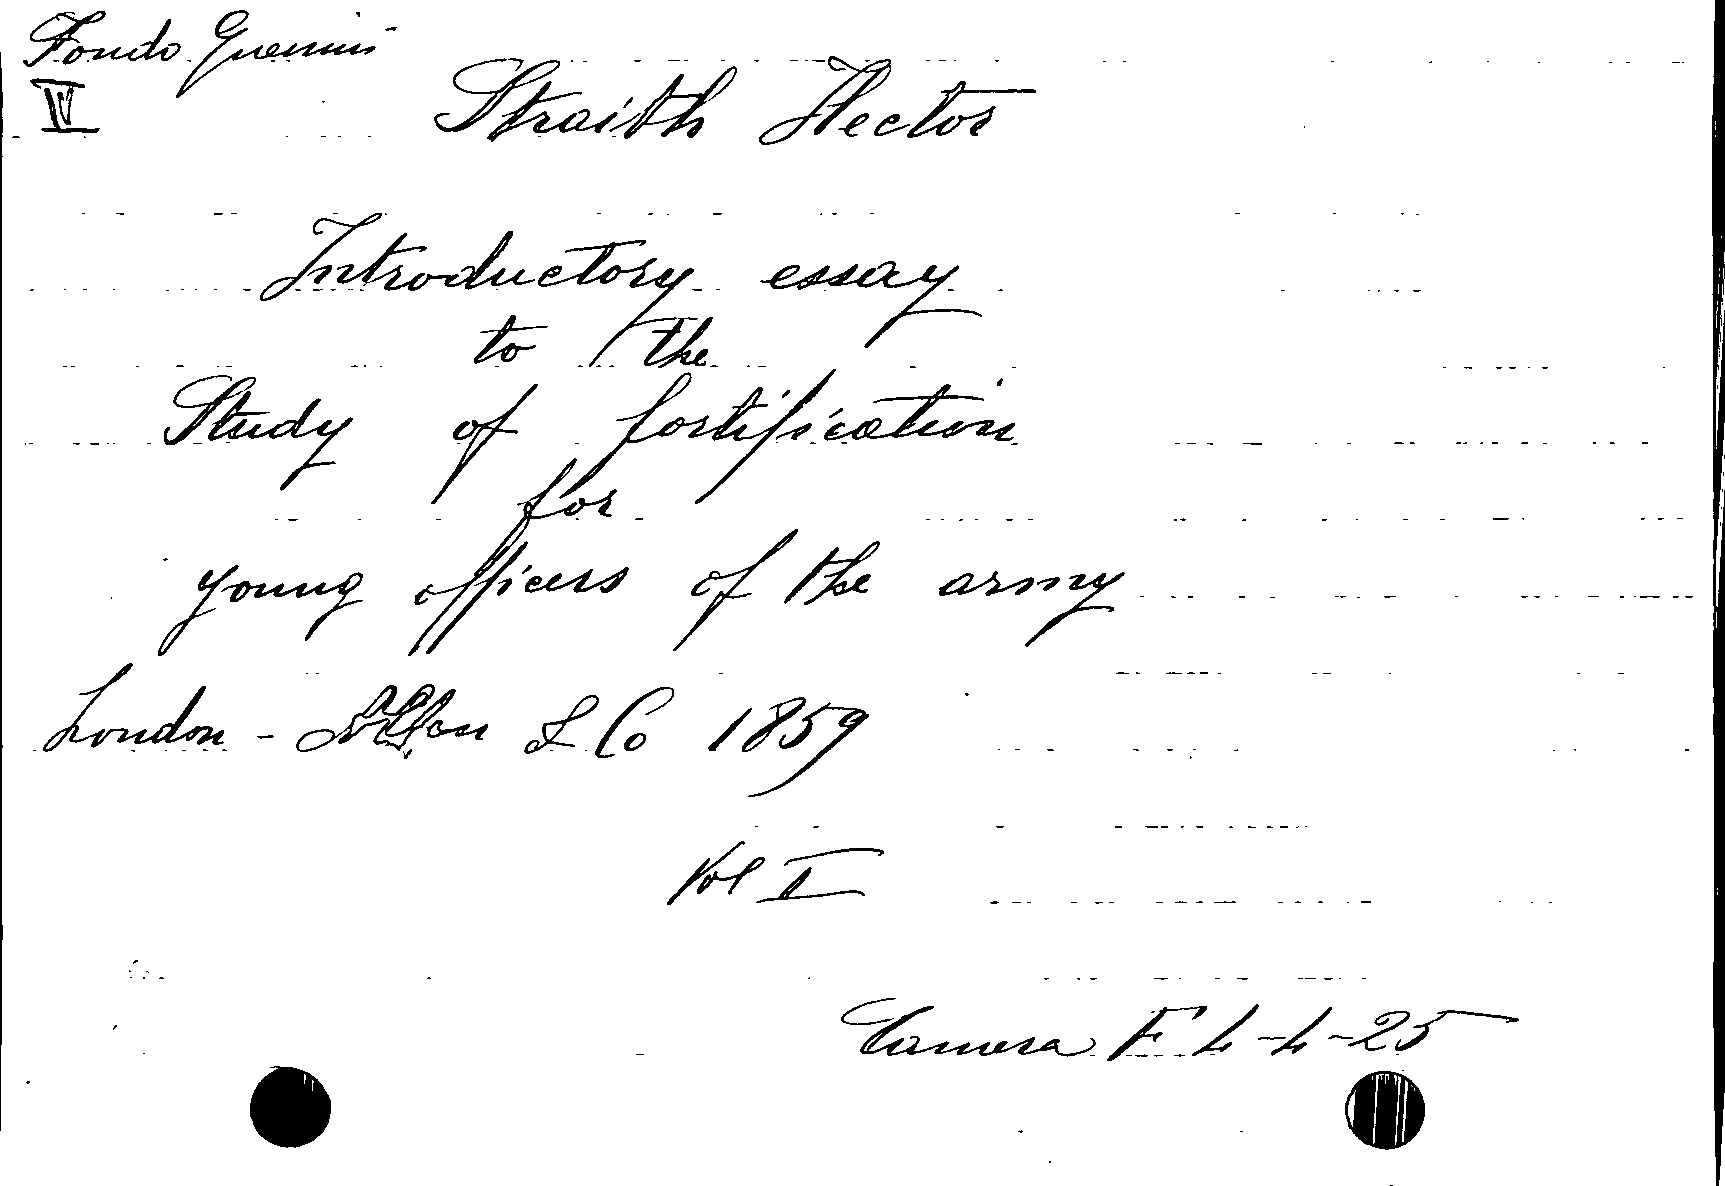 Fondo Guerrini
IV
Straith Hector
Introductory essay
to the
Study of fortification
for
young officers of the army
London - Allen & Co 1859
Vol I
Camera F 4-4-25